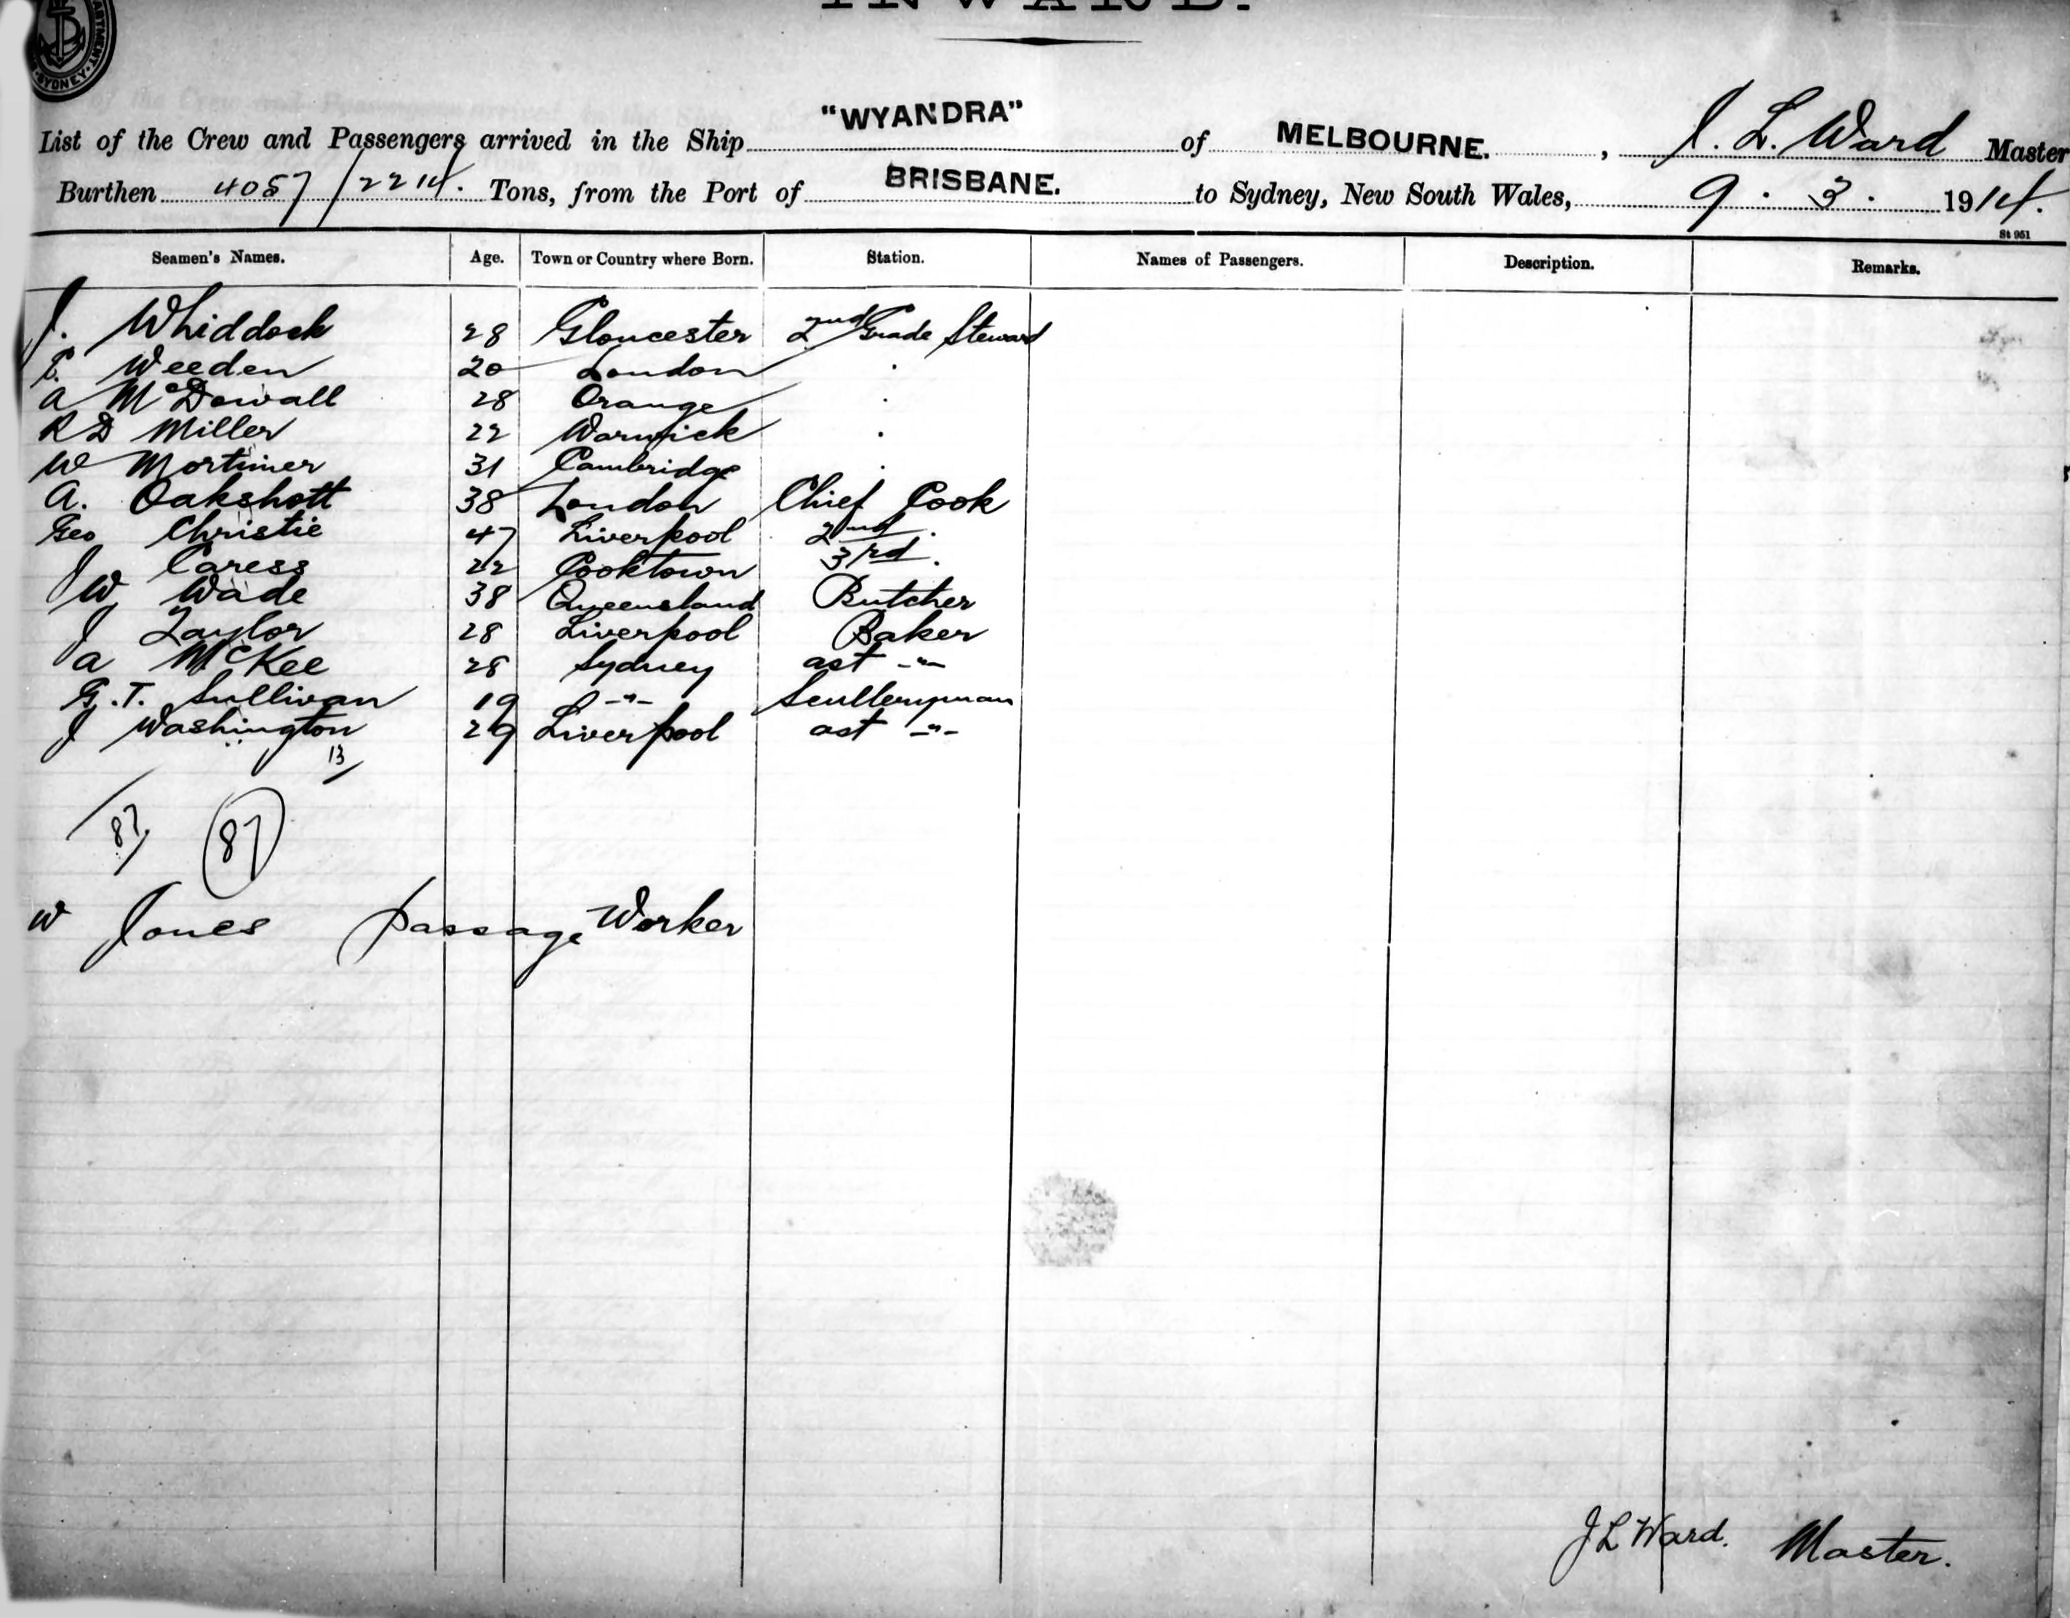 INWARD.
SYDNEY
List of the Crew and Passengers arrived in the Ship "WYANDRA" of MELBOURNE. , J. L. Ward Master
Burthen 4057/2214. Tons, from the Port of BRISBANE. to Sydney, New South Wales, 9.3.1914.
St 951
Seamen's Names. Age. Town or Country where Born. Station. Names of Passengers. Description. Remarks.
J. Whiddock 28 Gloucester 2nd Grade Steward
Weeden 20 London .
A McDowall 28 Orange .
R D Miller 22 Warwick .
W Mortimer 31 Cambridge .
A. Oakshott 38 London Chief Cook
Geo Christie 47 Liverpool 2nd .
J Caress 22 Cooktown 3rd .
W Wade 38 Queensland Butcher
J Taylor 28 Liverpool Baker
A McKee 28 Sydney ast -"-
G.T. Sullivan 19 -"- Sculleryman
J Washington 29 Liverpool ast -"-
13
87 87
W Jones passage Worker
J L Ward. Master.